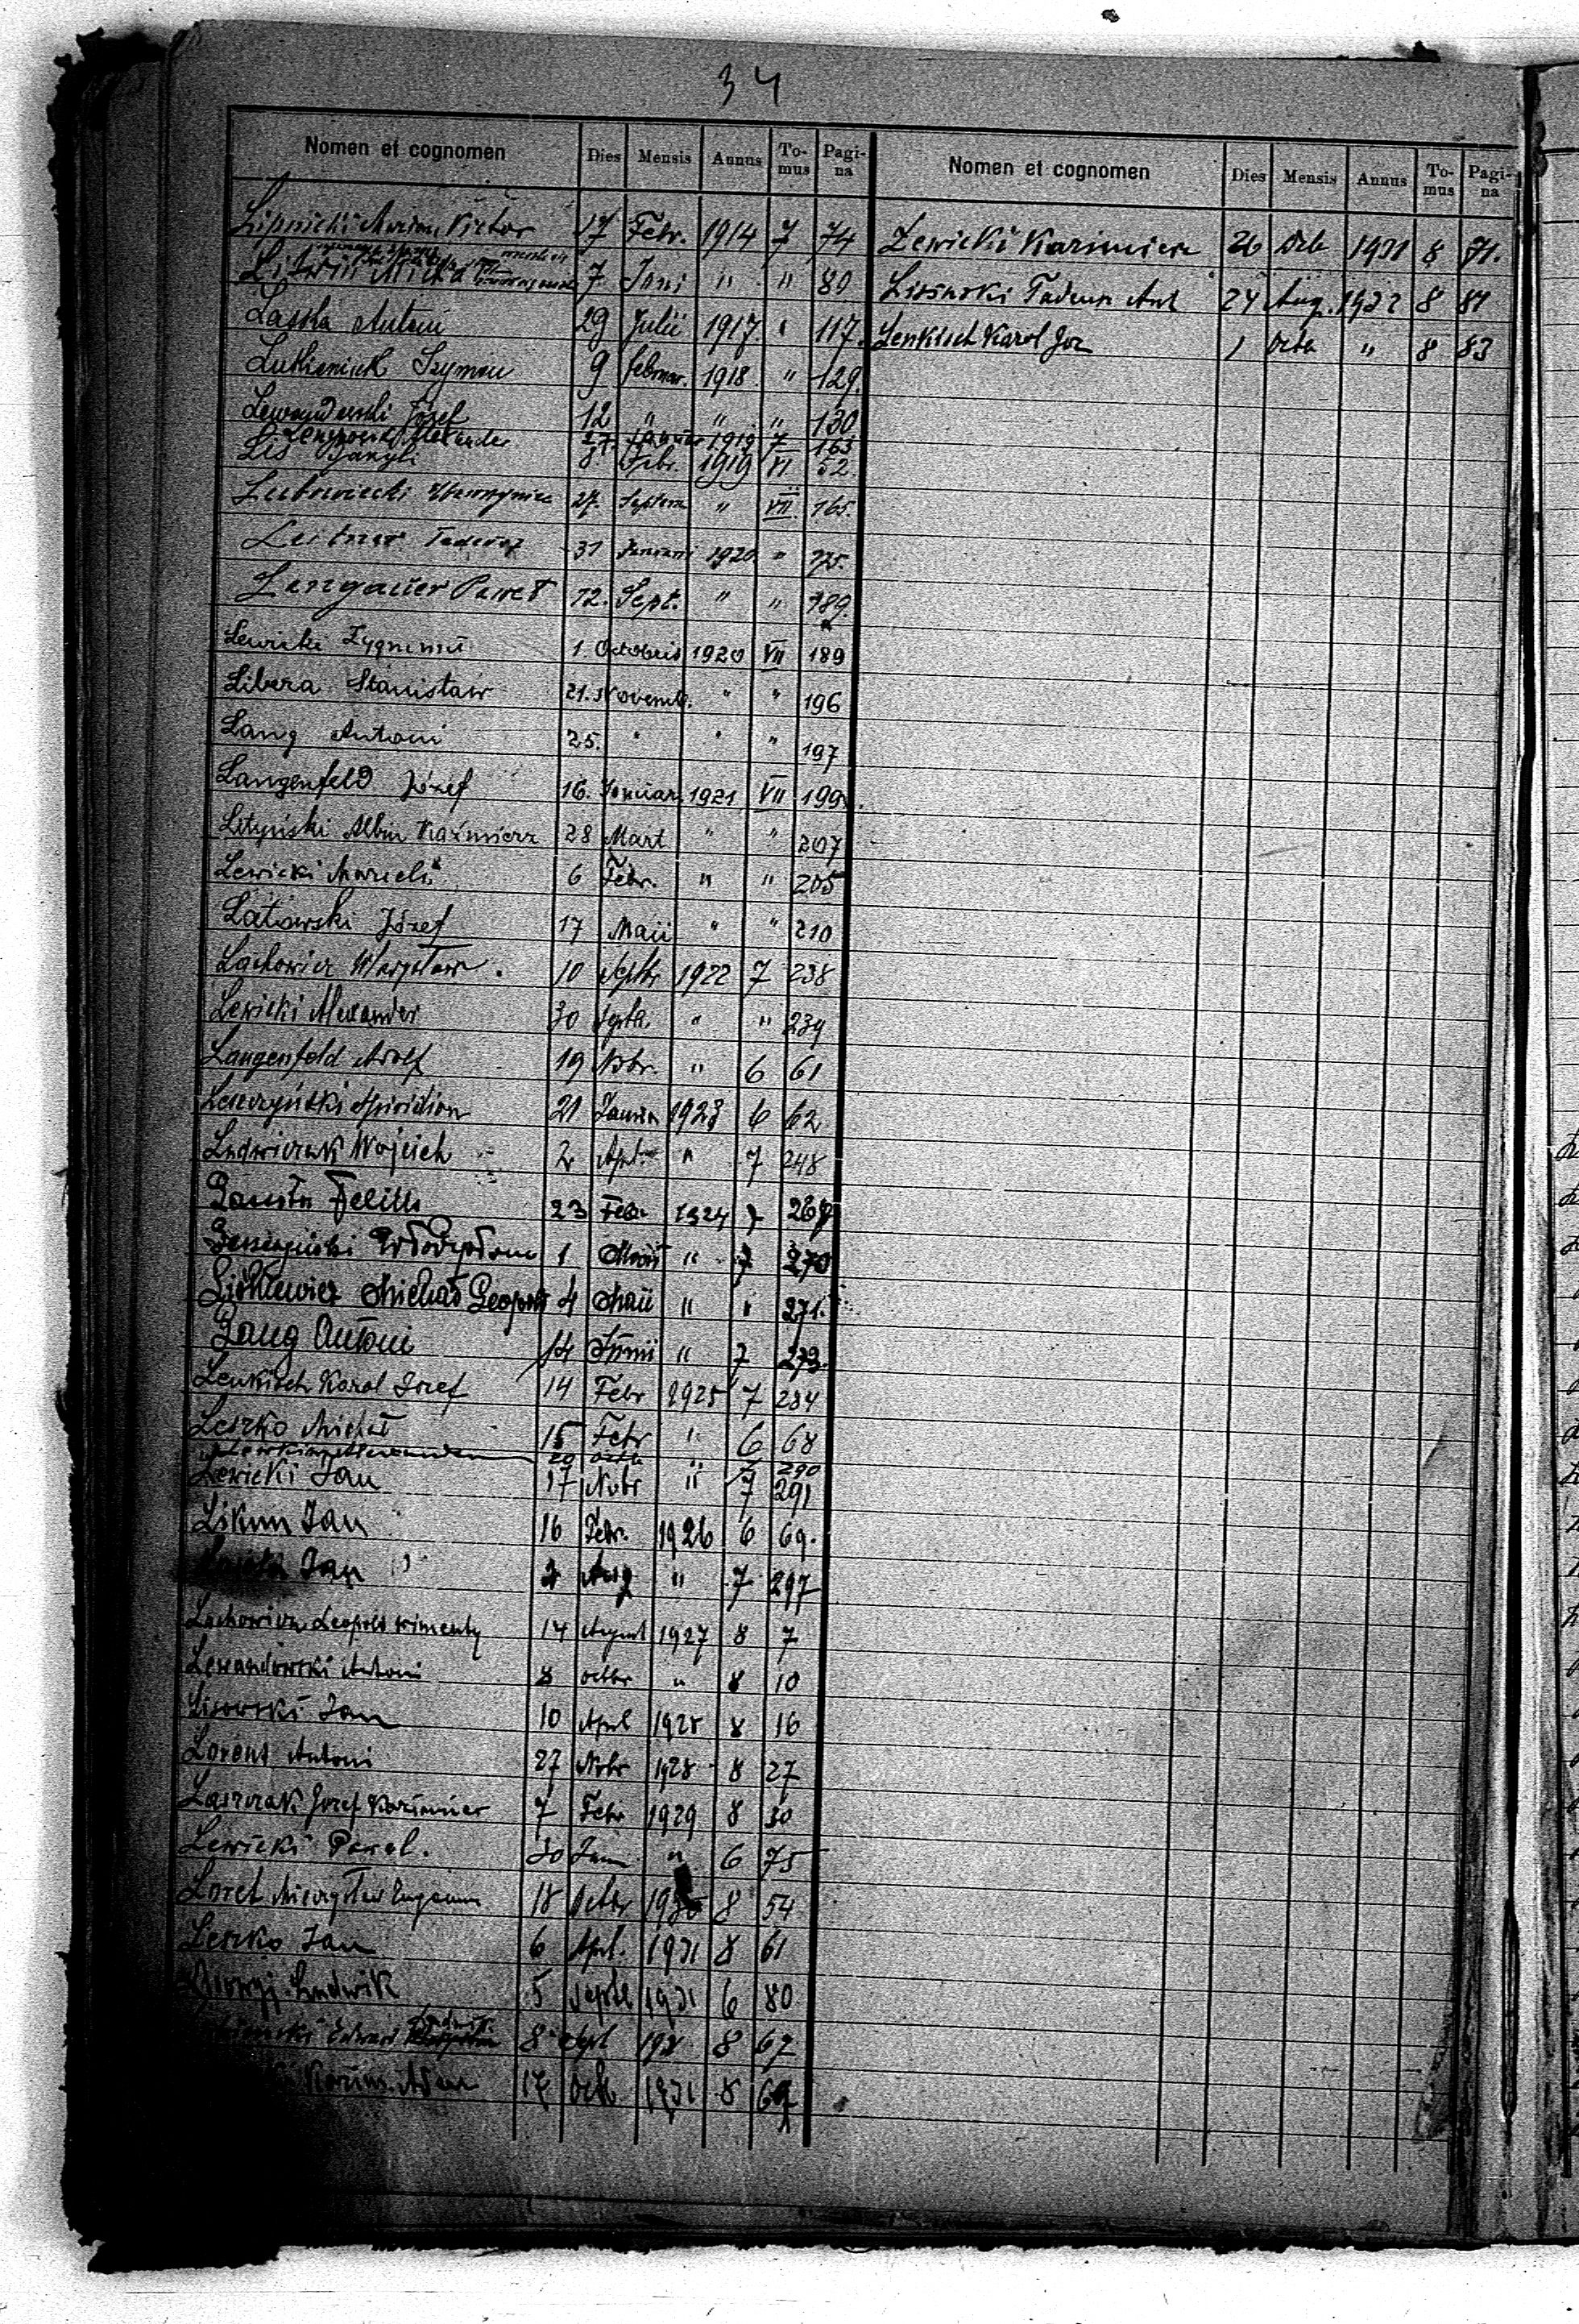 34
Nomen et cognomen Dies Mensis Annus To-mus Pagi-na
Lipnicki Marian Victor 17 Febr. 1914 7 74
Litwin 7 Juni " " 80
Laska Antoni 29 Julii 1917 " 117.
Lukieniuk Szymon 9 februar. 1918 " 129.
Lewandowski Józef 12 " " " 130
27 1919 7 163
Lis 8 Febr. 1919 VI 52
27. Septem " VII. 165.
Leitner Tadeusz 31 Januarii 1920 " 175.
Lengauer Paweł 12. Sept. " " 189.
Lewicki Zygmunt 1. Octobris 1920 VII 189
Libera Stanisław 21. Novemb. " " 196
Lang Antoni 25. " " " 197
Langenfeld Józef 16. Januar. 1921 VII 199.
Lityński Albin Kazimierz 28 Mart " " 207
Lewicki Marceli 6 Febr. " " 205
Latawski Józef 17 Maii " " 210
Lachowicz 10 Septbr 1922 7 238
Lewicki Alexander 30 Septb. " " 239
Langenfeld Adolf 19 Nobr. " 6 61
Leszczyński Spiridion 21 Januar 1923 6 62
Ludwiczak Wojciech 2 Apl. " 7 248
Feliks 23 Febr 1924 7 267
1 Maii " 7 270
Liskiewicz Michał Leopold 4 Maii " " 271.
Lang Antoni 14 Junii " 7 273.
Lenkisch Karol Józef 14 Febr 1925 7 284
Leszko Michał 15 Febr " 6 68
20 octb " 7 290
Lewicki Jan 17 Nobr " 7 291
Likun Jan 16 Febr. 1926 6 69.
Jan 2 Aug " 7 297
Lachowicz Leopold Wincenty 14 August 1927 8 7
Lewandowski Antoni 8 octbr " 8 10
Lisowski Jan 10 Apl 1928 8 16
Lorens Antoni 27 Nobr 1928 8 27
Laszczak Józef Kazimier 7 Febr 1929 8 30
Lewicki Pawel. 30 Jan " 6 75
Loret Mieczysław Eugeniusz 18 Octbr 1930 8 54
Leszko Jan 6 Apl. 1931 8 61
Ludwik 5 Septb 1931 6 80
Edward Ludwik 8 Spt 193 8 67
Kazim. Adam 17 Octb 1931 8 69
Nomen et cognomen Dies Mensis Annus To-mus Pagi-na
Lewicki Kazimierz 26 Octb 1931 8 71.
Lisinski Tadeusz Ant 24 Aug. 1932 8 81
Lenkisch Karol Joz 1 Octb " 8 83